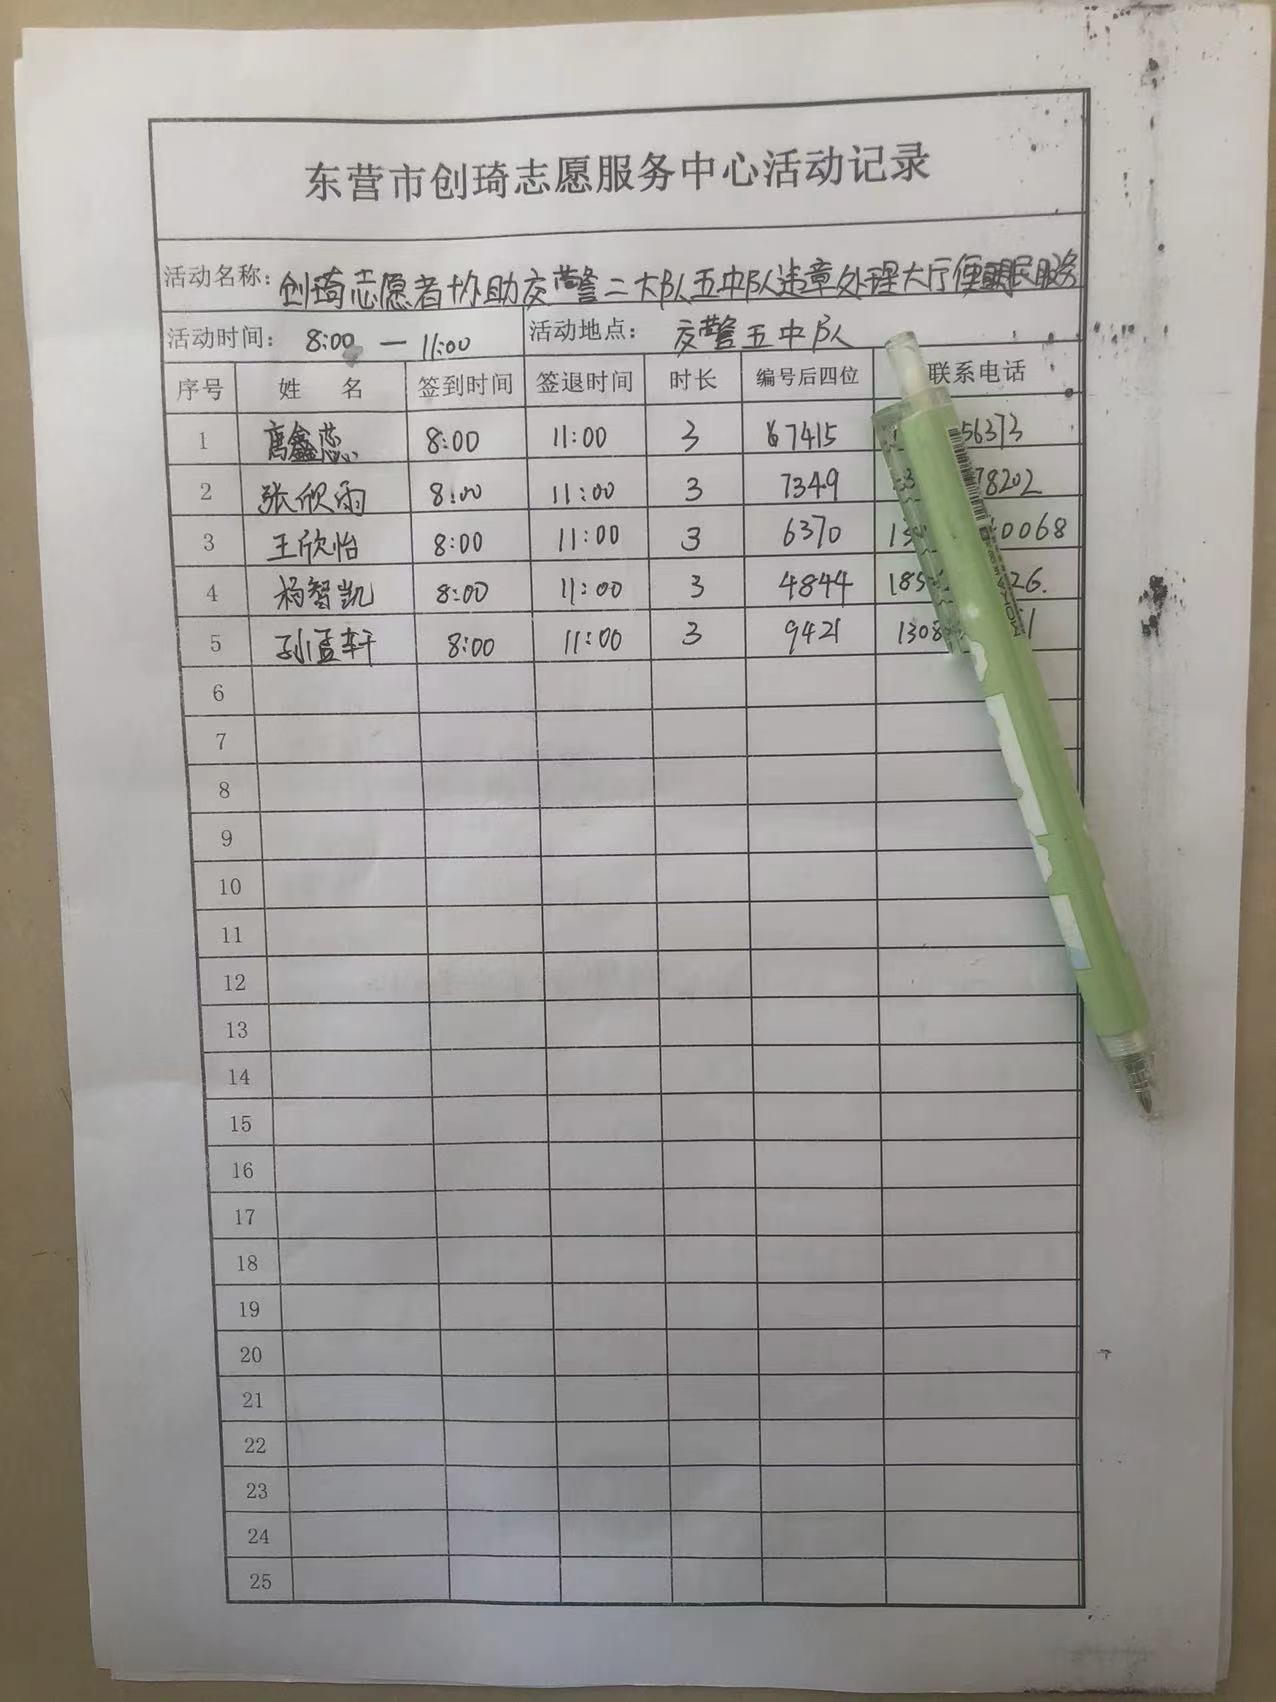 东营市创琦志愿服务中心活动记录
活动名称：创琦志愿者协助交警二大队五中队违章处理大厅便民服务
活动时间：8:00 — 11:00 活动地点：交警五中队
序号 姓 名 签到时间 签退时间 时长 编号后四位 联系电话
1 鑫蕊 8:00 11:00 3 7415 56373
2 张欣雨 8:00 11:00 3 7349 78202
3 王欣怡 8:00 11:00 3 6370 0068
4 杨智凯 8:00 11:00 3 4844 185 26.
5 孙孟轩 8:00 11:00 3 9421 1308 1
6
7
8
9
10
11
12
13
14
15
16
17
18
19
20
21
22
23
24
25